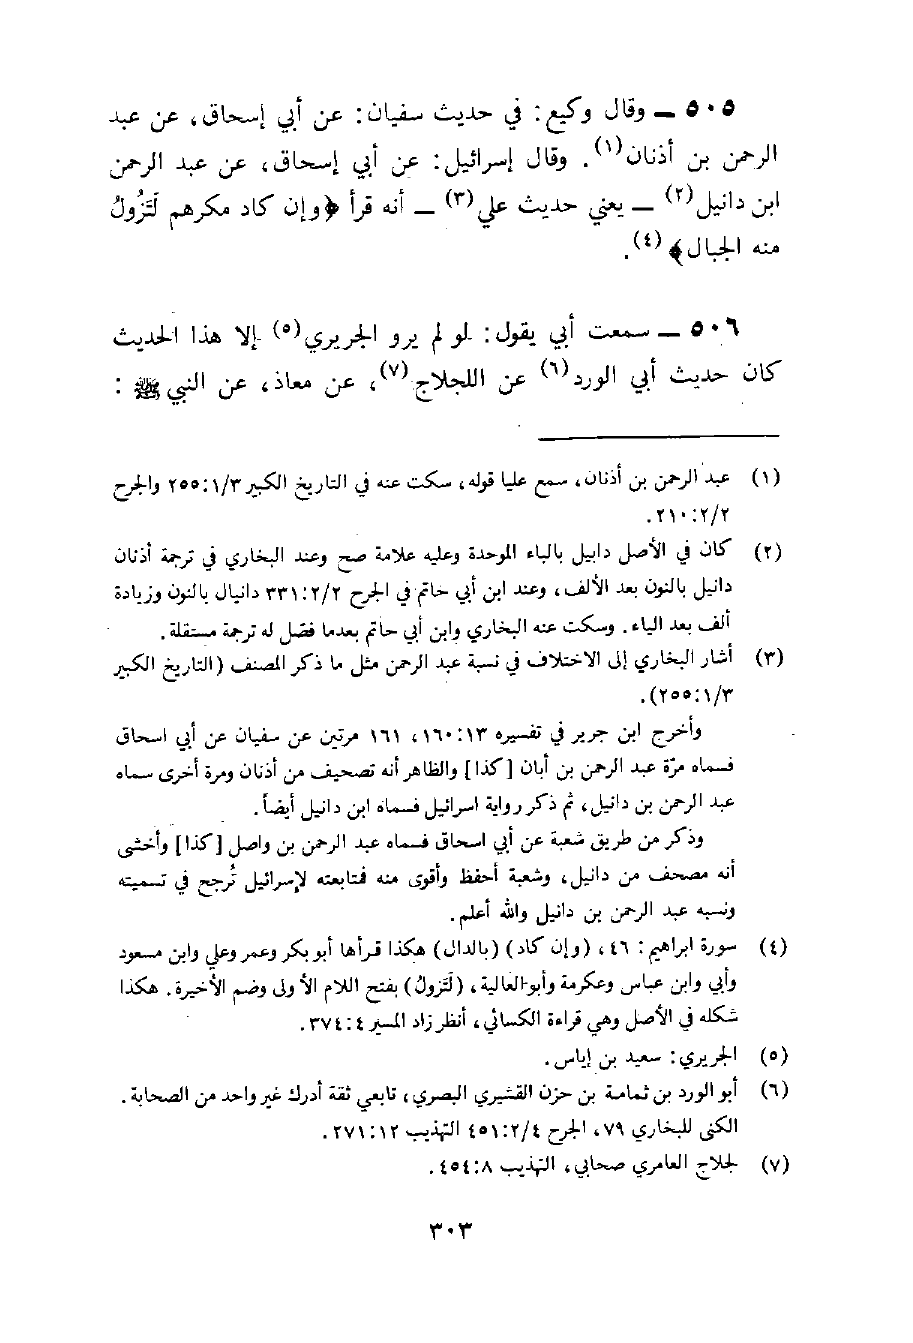 ٥٠٥ ــ وقال وكيع: في حديث سفيان: عن أبي إسحاق، عن عبد
الرحمن بن أذنان(١). وقال إسرائيل: عن أبي إسحاق، عن عبد الرحمن
ابن دانيل(٢) ــ يعني حديث علي(٣) ــ أنه قرأ ﴿وإن كاد مكرهم لَتَزُولُ
منه الجبال﴾(٤).
٥٠٦ ــ سمعت أبي يقول: لو لم يرو الجريري(٥) إلا هذا الحديث
كان حديث أبي الورد(٦) عن اللجلاج(٧)، عن معاذ، عن النبي ﷺ:
(١) عبد الرحمن بن أذنان، سمع عليا قوله، سكت عنه في التاريخ الكبير ٢٥٥:١/٣ والجرح
٢١٠:٢/٢.
(٢) كان في الأصل دابيل بالباء الموحدة وعليه علامة صح وعند البخاري في ترجمة أذنان
دانيل بالنون بعد الألف، وعند ابن أبي حاتم في الجرح ٣٣١:٢/٢ دانيال بالنون وزيادة
ألف بعد الياء. وسكت عنه البخاري وابن أبي حاتم بعدما فصل له ترجمة مستقلة.
(٣) أشار البخاري إلى الاختلاف في نسبة عبد الرحمن مثل ما ذكر المصنف (التاريخ الكبير
٢٥٥:١/٣).
وأخرج ابن جرير في تفسيره ١٦٠:١٣، ١٦١ مرتين عن سفيان عن أبي اسحاق
فسماه مرّة عبد الرحمن بن أبان [كذا] والظاهر أنه تصحيف من أذنان ومرة أخرى سماه
عبد الرحمن بن دانيل، ثم ذكر رواية اسرائيل فسماه ابن دانيل أيضاً.
وذكر من طريق شعبة عن أبي اسحاق فسماه عبد الرحمن بن واصل [كذا] وأخشى
أنه مصحف من دانيل، وشعبة أحفظ وأقوى منه فمتابعته لإسرائيل تُرجح في تسميته
ونسبه عبد الرحمن بن دانيل والله أعلم.
(٤) سورة ابراهيم: ٤٦، (وإن كاد) (بالدال) هكذا قرأها أبو بكر وعمر وعلي وابن مسعود
وأبي وابن عباس وعكرمة وأبو العالية، (لَتَزولُ) بفتح اللام الأولى وضم الأخيرة. هكذا
شكله في الأصل وهي قراءة الكسائي، أنظر زاد المسير ٣٧٤:٤.
(٥) الجريري: سعيد بن إياس.
(٦) أبو الورد بن ثمامة بن حزن القشيري البصري، تابعي ثقة أدرك غير واحد من الصحابة.
الكنى للبخاري ٧٩، الجرح ٤٥١:٢/٤ التهذيب ٢٧١:١٢.
(٧) لجلاج العامري صحابي، التهذيب ٤٥٤:٨.
٣٠٣